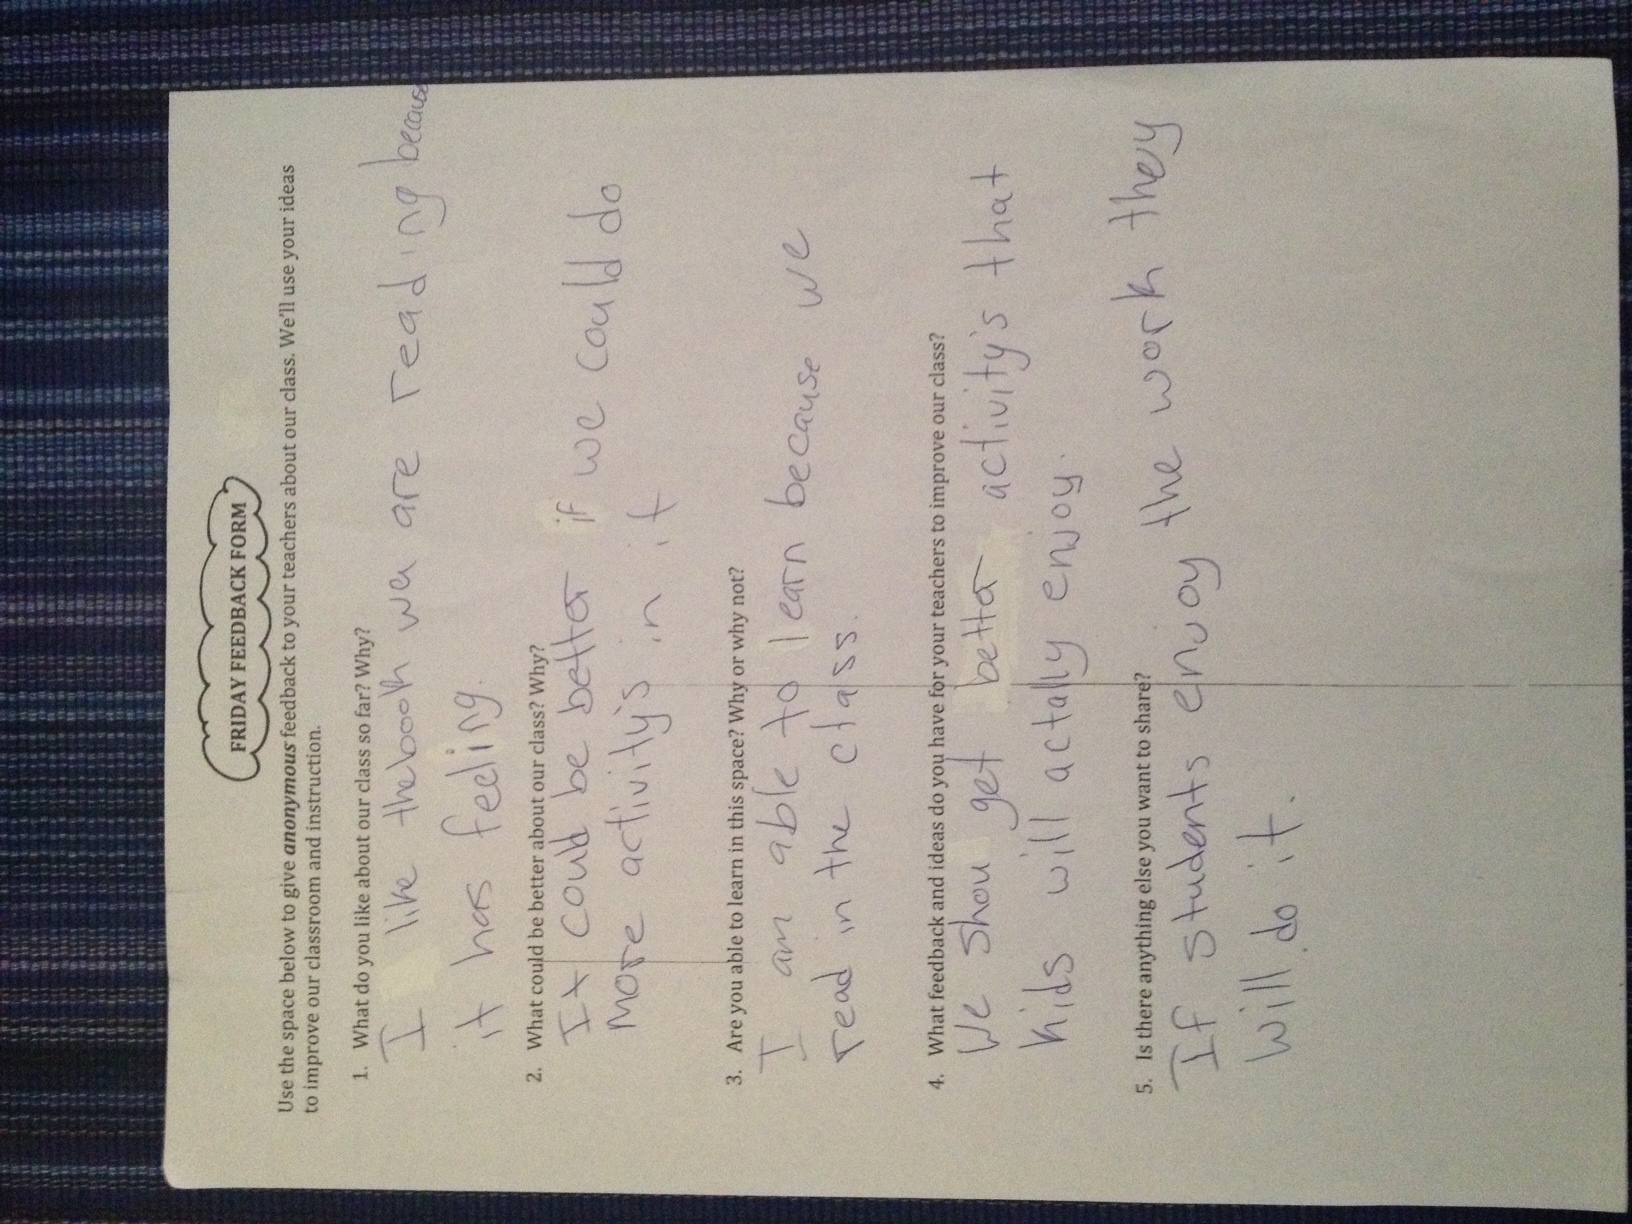 FRIDAY FEEDBACK FORM
Use the space below to give anonymous feedback to your teachers about our class. We'll use your ideas
to improve our classroom and instruction.
1. What do you like about our class so far? Why?
I like the book we are reading because
it has feeling.
2. What could be better about our class? Why?
It could be better if we could do
more activity's in it
3. Are you able to learn in this space? Why or why not?
I am able to learn because we
read in the class.
4. What feedback and ideas do you have for your teachers to improve our class?
We shou get better activity's that
kids will actally enjoy.
5. Is there anything else you want to share?
If students enjoy the work they
will do it.